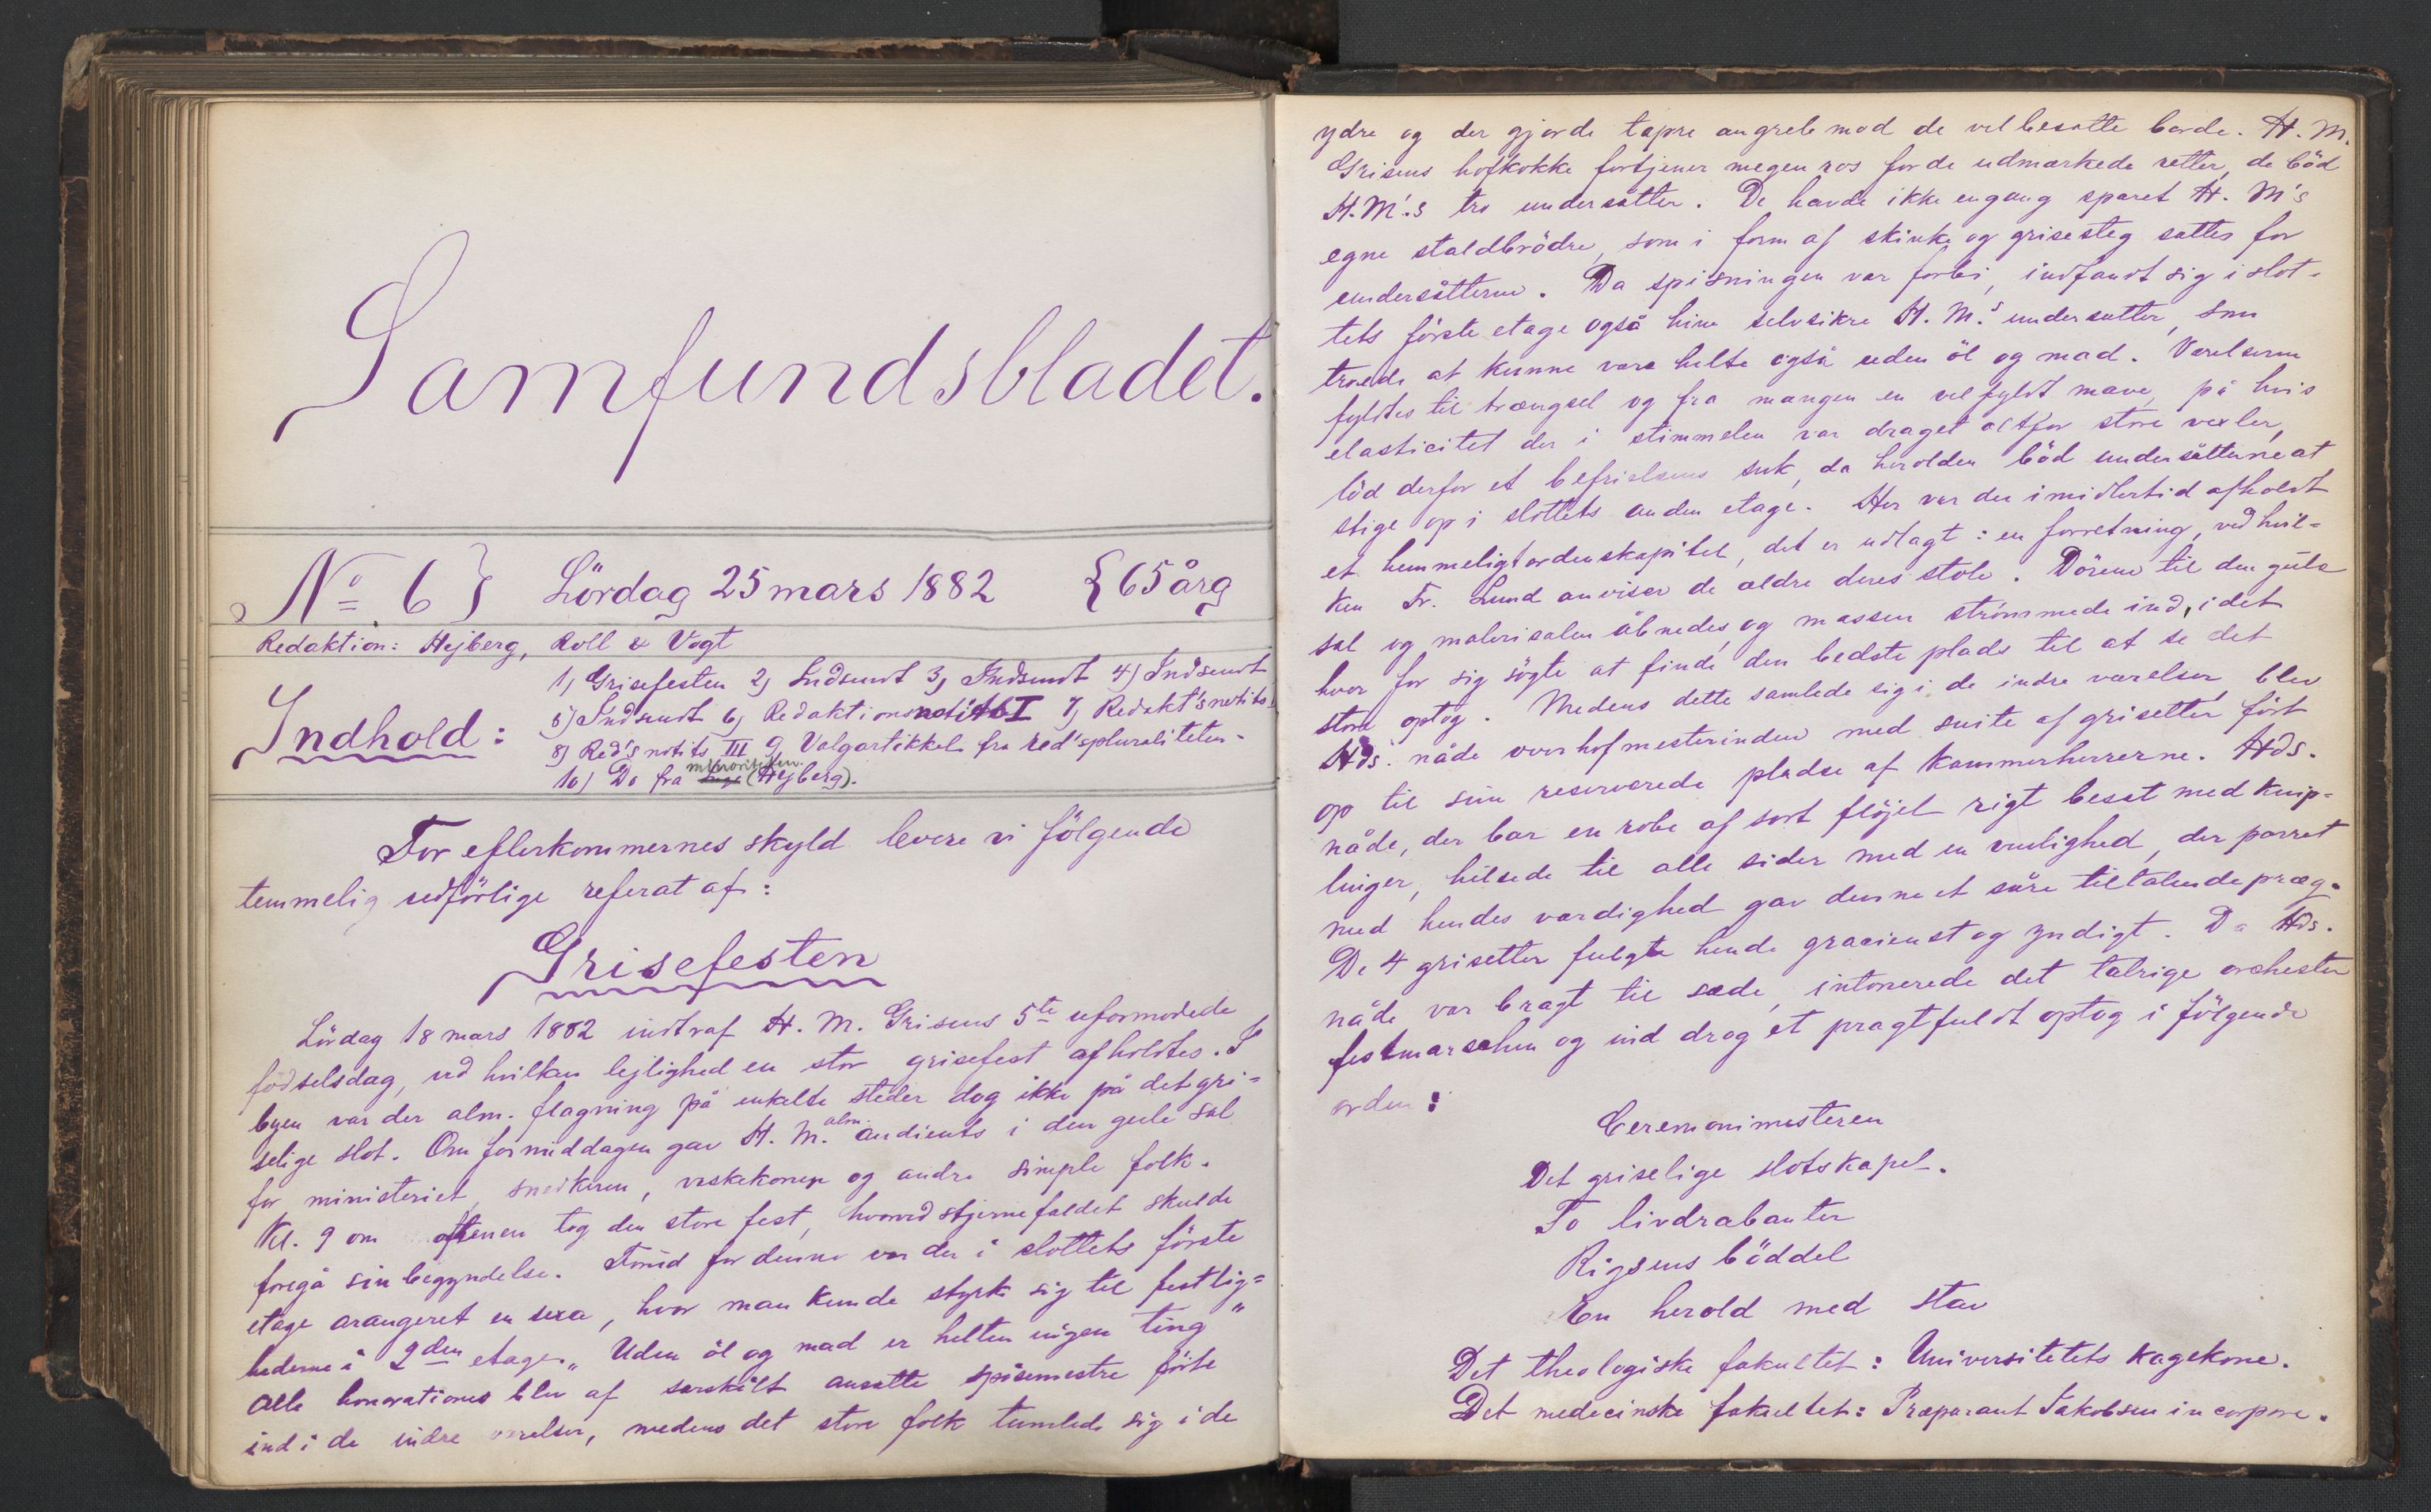 Samfundsbladet.
No 6} Lördag 25 mars 1882 {65 årg
Redaktion: Hejberg, Roll & Vogt
Indhold:
1) Grisefesten 2) Indsendt 3) Indsendt 4) Indsendt
5) Indsendt 6) Redaktionsnotits I 7) Redakt's notits
8) Red's notits III 9) Valgartikkel fra red'spluraliteten.
10) Do fra minoriteten (Hejberg).
For efterkommernes skyld levere vi fölgende
temmelig udförlige referat af:
Grisefesten
Lördag 18 mars 1882 indtraf H. M. Grisens 5te uformodede
födselsdag, ved hvilken lejlighed en stor grisefest afholdtes. I
byen var der alm. flagning på enkelte steder dog ikke på det gri=
selige slot. Om formiddagen gav H. M. alm. audients i den gule sal
for ministeriet, snedkeren, vaskekonen og andre simple folk.
Kl. 9 om aftenen tog den store fest, hvorved stjernefaldet skulde
foregå sin begyndelse. Forud for denne var der i slottets förste
etage arangeret en sexa, hvor man kunde styrke sig til festlig=
hederne i 2den etage. „Uden öl og mad er helten ingen ting"
Alle honorationes blev af særskilt ansatte spisemestre förte
ind i de indre værelser, medens det store folk tumlede sig i de
ydre og der gjorde tapre angreb mod de velbesatte borde. H. M.
Grisens hofkokke fortjener megen ros for de udmærkede retter, de böd
H. M.'s tro undersåtter. De havde ikke engang sparet H. M's
egne staldbrödre, som i form af skinke og grisesteg sattes for
undersåtterne. Da spisningen var forbi, indfandt sig i slot-
tets förste etage også hine selvsikre H. M.s undersåtter, som
troede at kunne være helte også uden öl og mad. Værelserne
fyldtes til trængsel og fra mangen en velfyldt mave, på hvis
elasticitet der i stimmelen var draget altfor store vexler,
löd derfor et befrielsens suk, da herolden böd undersåtterne at
stige op i slottets anden etage. Her var der imidlertid afholdt
et hemmeligt ordenskapitel, det er udlagt: en forretning, ved hvil=
ken Fr. Lund anviser de ældre deres stole. Dörene til den gule
sal og malerisalen åbnedes, og massen strömmede ind, idet
hver for sig sögte at finde den bedste plads til at se det
store optog. Medens dette samlede sig i de indre værelser, blev
Hds. nåde overhofmesterinden med suite af grisetter fört
op til sine reserverede pladse af kammerherrerne. Hds.
nåde, der bar en robe af sort flöjel rigt besat med knip=
linger, hilsede til alle sider med en venlighed, der parret
med hendes værdighed gav denne et såre tiltalende præg.
De 4 grisetter fulgte hende graciöst og yndigt. Da Hds.
nåde var bragt til sæde, intonerede det talrige orchester
festmarschen og ind drog et pragtfuldt optog i fölgende
orden:
Ceremonimesteren
Det griselige slotskapel.
To livdrabanter
Rigsens böddel
En herold med stav
Det theologiske fakultet: Universitetets kagekone.
Det medicinske fakultet: Præparant Jakobsen in corpore.